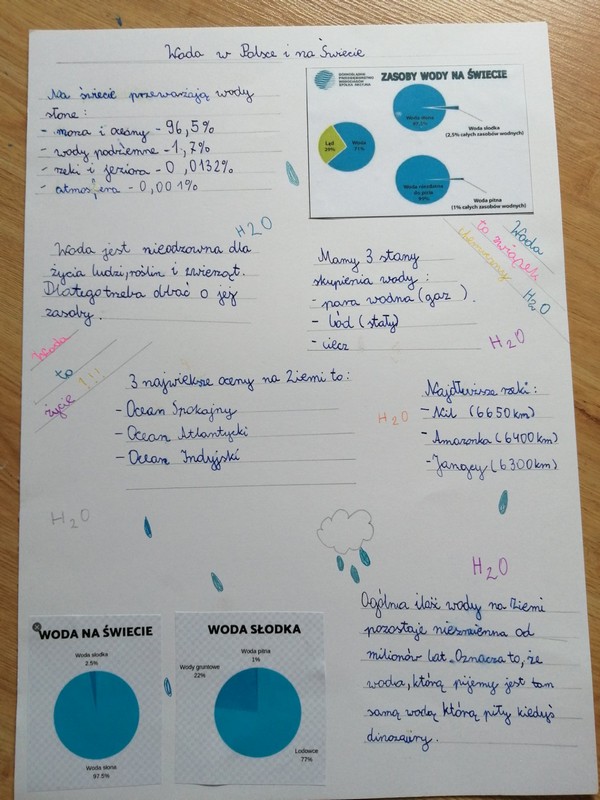 Woda w Polsce i na Świecie
Na świecie przeważają wody
słone:
- morza i oceany - 96,5%
- wody podziemne - 1,7%
- rzeki i jeziora - 0,0132%
- atmosfera - 0,001%
DOLNOŚLĄSKIE
PRZEDSIĘBIORSTWO
WODOCIĄGÓW
SPÓŁKA AKCYJNA
ZASOBY WODY NA ŚWIECIE
Woda słona
97,5%
Woda słodka
(2,5% całych zasobów wodnych)
Ląd
29%
Woda
71%
Woda niezdatna
do picia
99%
Woda pitna
(1% całych zasobów wodnych)
H2O
Woda
to związek
chemiczny
H2O
Woda jest nieodzowna dla
życia ludzi, roślin i zwierząt.
Dlatego trzeba dbać o jej
zasoby.
Mamy 3 stany
skupienia wody:
- para wodna (gaz).
- lód (stały)
- ciecz
H2O
Woda
to
życie !!!
3 największe oceny na Ziemi to:
- Ocean Spokojny
- Ocean Atlantycki
- Ocean Indyjski
H2O
Najdłuższe rzeki:
- Nil (6650km)
- Amazonka (6400km)
- Jangcy (6300km)
H2O
H2O
Ogólna ilość wody na Ziemi
pozostaje niezmienna od
milionów lat. Oznacza to, że
woda, którą pijemy jest tam
samą wodą którą piły kiedyś
dinozaury.
WODA NA ŚWIECIE
Woda słodka
2.5%
Woda słona
97.5%
WODA SŁODKA
Woda pitna
1%
Wody gruntowe
22%
Lodowce
77%